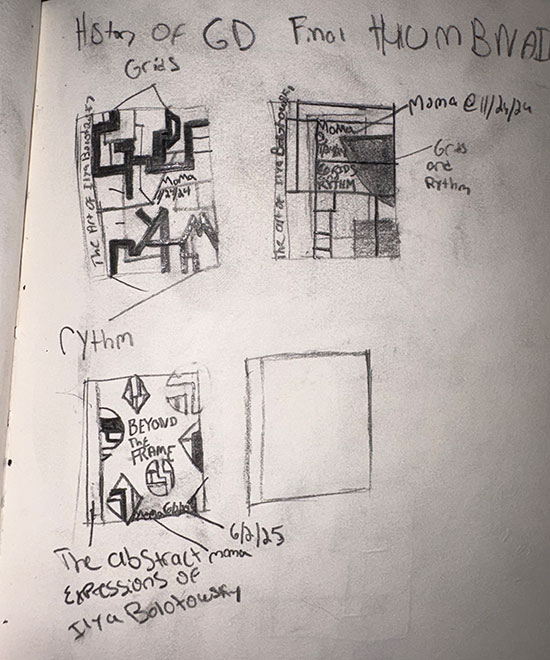 History OF GD Final THUMBNAI
Grids
The Art of Ilya Bolotowsky
MoMa
11/24/24
rythm
The art of Ilya Bolotowsky
MoMa
GRIDS
&
RYTHM
Moma @ 11/24/24
Grids
and
Rythm
BEYOND
THE
FRAME
6/2/25
moma
The abstract
Expressions OF
Ilya Bolotowsky